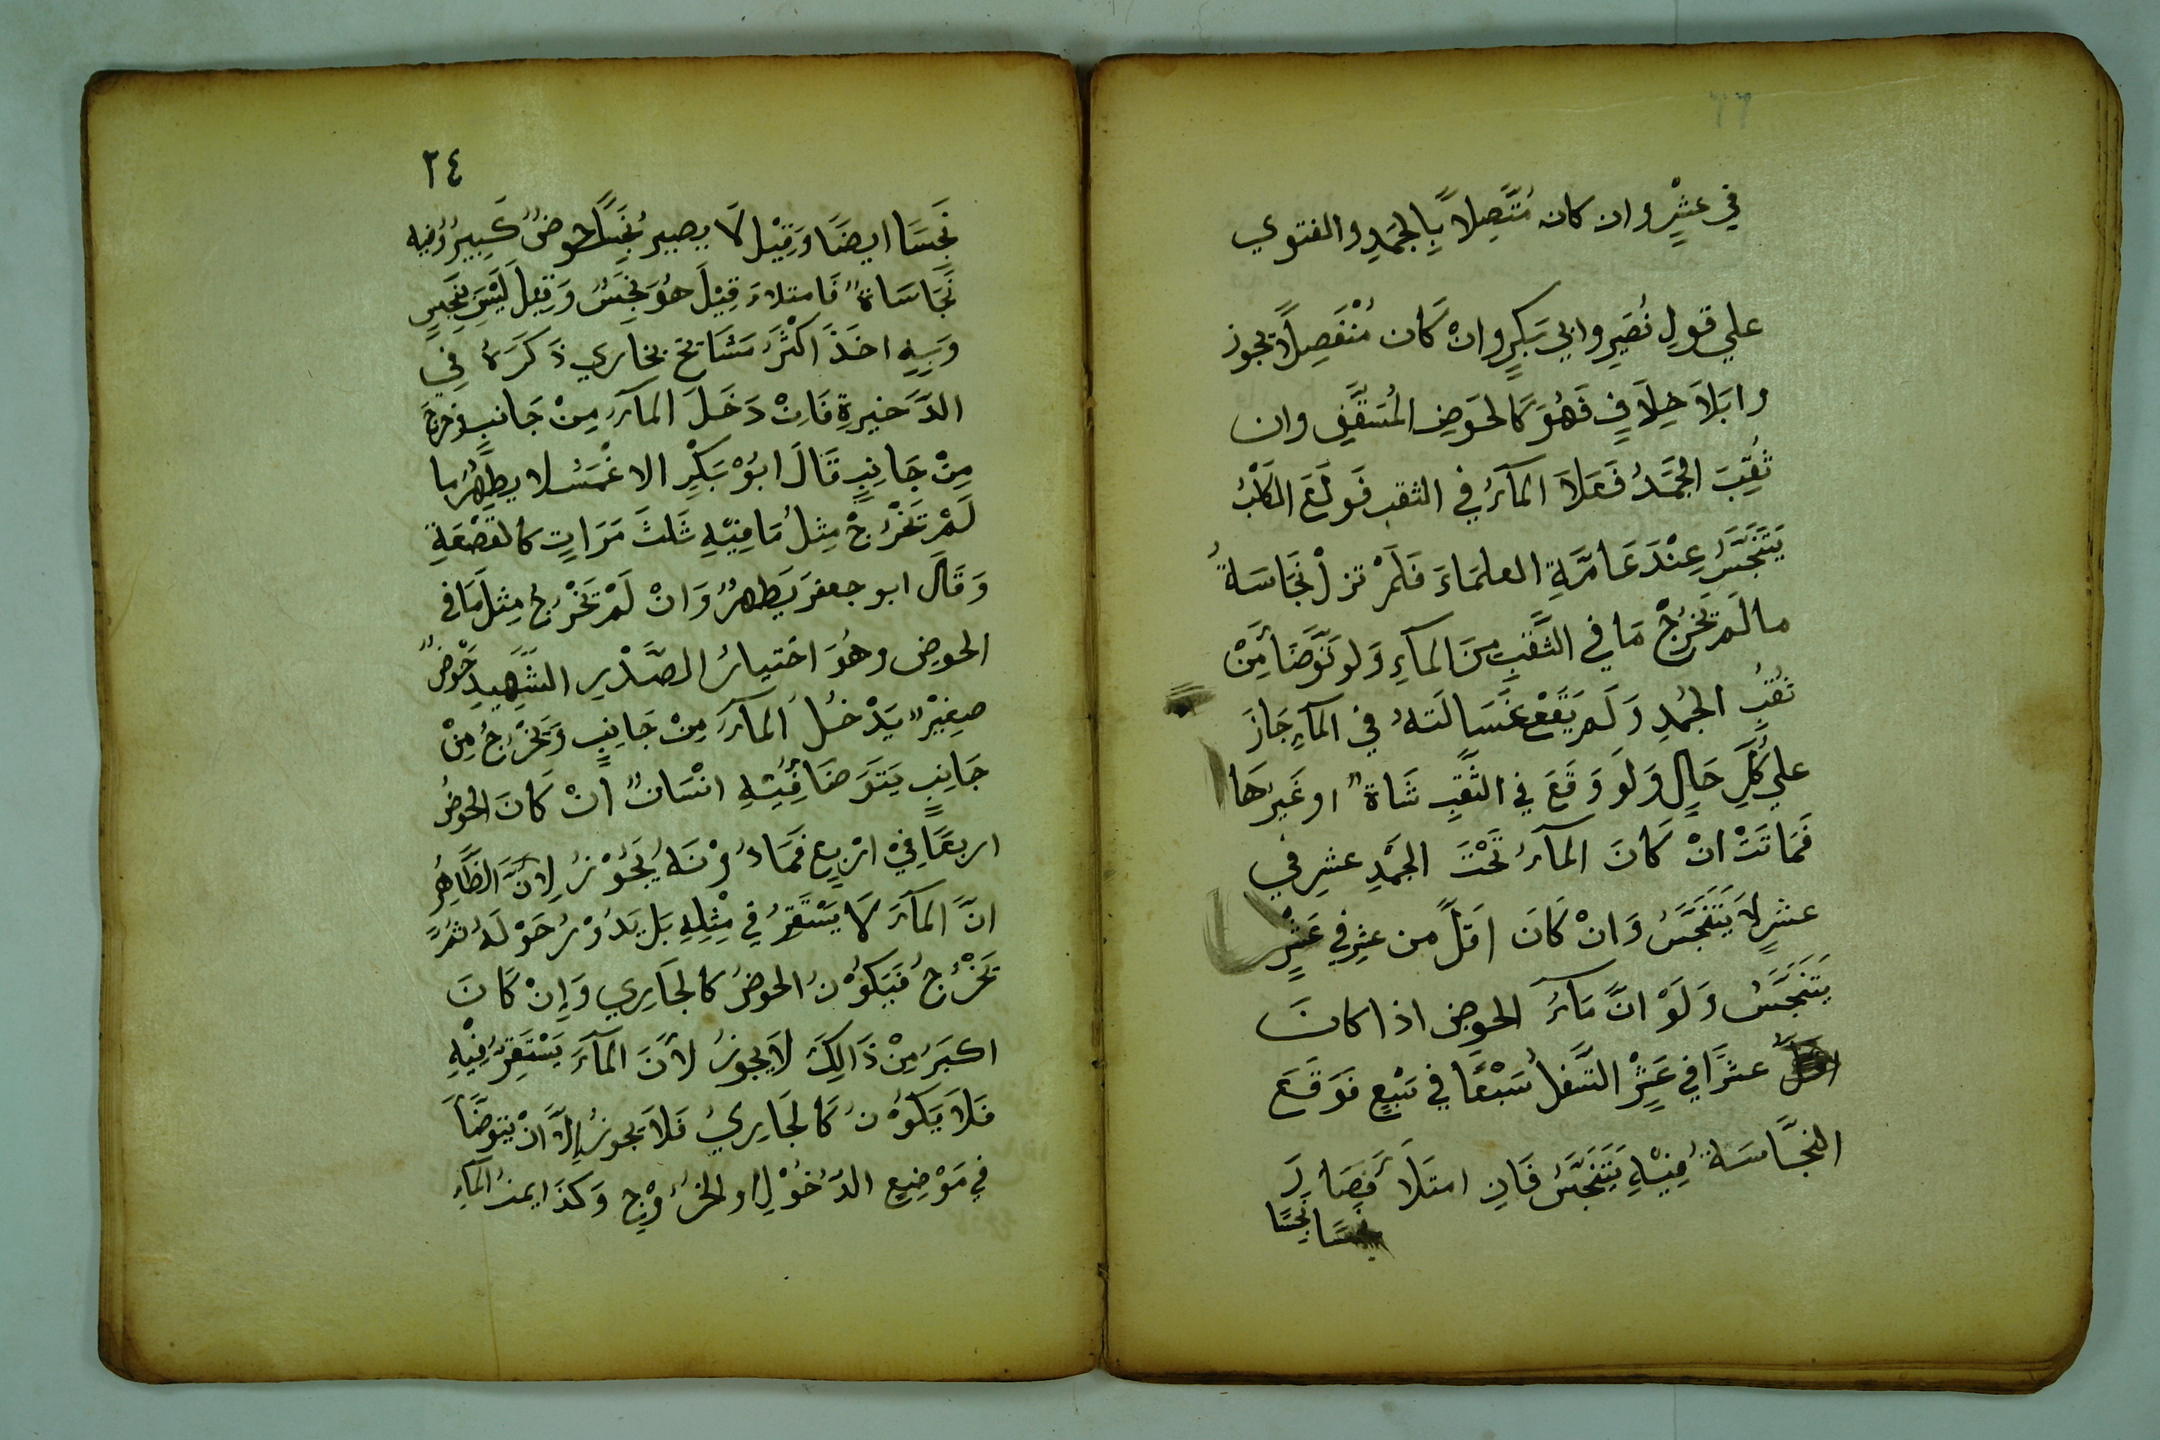 في عشْرٍ وان كان مُتَّصِلاً بِالجَمَدِ والفتوي
علي قولِ نُصَيرٍ وابي بَكرٍ وانْ كَان مُنْفَصِلاً يجوز
وا بَلاَ خِلاَفٍ فَهُوَ كَالحَوضِ المُسَقَّفِ وان
ثُقِبَ الجَمَدُ فَعَلاَ المآءُ في الثقب فَولَغَ الكلْبُ
يَتَنَجَّسُ عِنْدَ عَامَّةِ العلمَاءَ فَلَمْ تزلْ نجَاسَةُ
مالَم تَخرُجْ مَا في الثَّقبِ مِنَ المآءِ وَلو تَوَّضَأ مِّنْ
نقُبُ الجُمدِ وَلَم يَقَعْ غَسَالَتهُ في المآءِ جَازَ
علي كُلِّ حَالٍ وَلَو وَقَعَ في الثَّقبِ شَاةٌ او غَيرَهَا
فَمَاتَتْ انْ كَانَ المآءُ تَحْتَ الجَمَدِ عشرِ في
عشرٍ لاَ يَتَنَجَّسُ وَانْ كَانَ اَقلَّ من عشِر في عَشْرٍ
يَتَنَجَّسُ وَلَوْ انَّ مَآءُ الحوضِ اذا كانَ
عشرًا في عَشْرٍ السَّفلُ سَبْعًا في سَبْعٍ فوَقَعَ
النجَّاسَةُ فِيْهِ يَتَنَجَّسُ فَانِ امتَلَأَ فَصَارَ
نَجِسًا
٢٤
نَجِسَا ايضًا وَقِيْل لاَ يصير نَجِسًا حوضٌ كَبِيرٌ فيه
نَجَاسَاةٌ فَامتلاءَ قِيْلَ هُوَ نجَسٌ وَقِيلَ لَيْسَ بنَجَسٍ
وَبِهِ اخَذَ اكثَرُ مَشَائخ بخَاري ذَكَرَهُ فِي
الذَّخيرةِ فَانْ دَخَلَ المآءُ مِنْ جَانبٍ وخرجَ
مِنْ جَانِبٍ قَالَ ابُوْ بَكْرِ الاغْمَسُ لا يطهِّرُ ما
لَمْ تَخْرُجْ مِثلُ مَا فِيْهِ ثَلثَ مَرَاتٍ كالقَصْعَةِ
وَقَالَ ابو جعفر يَطهرُ وَانْ لَمْ تَخْرُجُ مِثلَ مَا في
الحوضِ وهُوَ اختيارُ الصَّدْرِ الشَّهِيدِ حَوْضٌ
صغِيْرٌ يَدْخُلُ المآءَ مِنْ جَانِبٍ وَتَخْرُجُ مِنْ
جَانِبٍ يَتَوَضَا فِيْهِ انْسَانٌ انْ كَانَ الحوضُ
اربعًا فِيْ ارْبِعٍ فَمَادُوْنَهُ يَجُوْزُ لِاَنَّ الظَّاهِرُ
انَّ المآءَ لاَ يَسْتَقِرُ في مِثْلِهِ بَل يَدُوْرُ حَوْلَهُ ثمُ
تَخْرُجُ فَيَكوُنُ الحوضُ كالجَارِي وَاِنْ كَانَ
اكبَرُ مِنْ ذَالِكَ لاَ يجوزُ لاَنَّ المآءَ يَسْتَقِرُ فِيْهِ
فَلاَ يَكوُنُ كَالجَارِيُ فَلاَ يَجوزُ اِلاَّ انْ يتوضَّأَ
في مَوْضِعِ الدُّخُوْلِ اوالخرُوْجِ وَكذَا يمنُ المآءِ